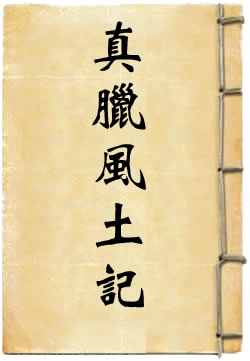 真臘風土記